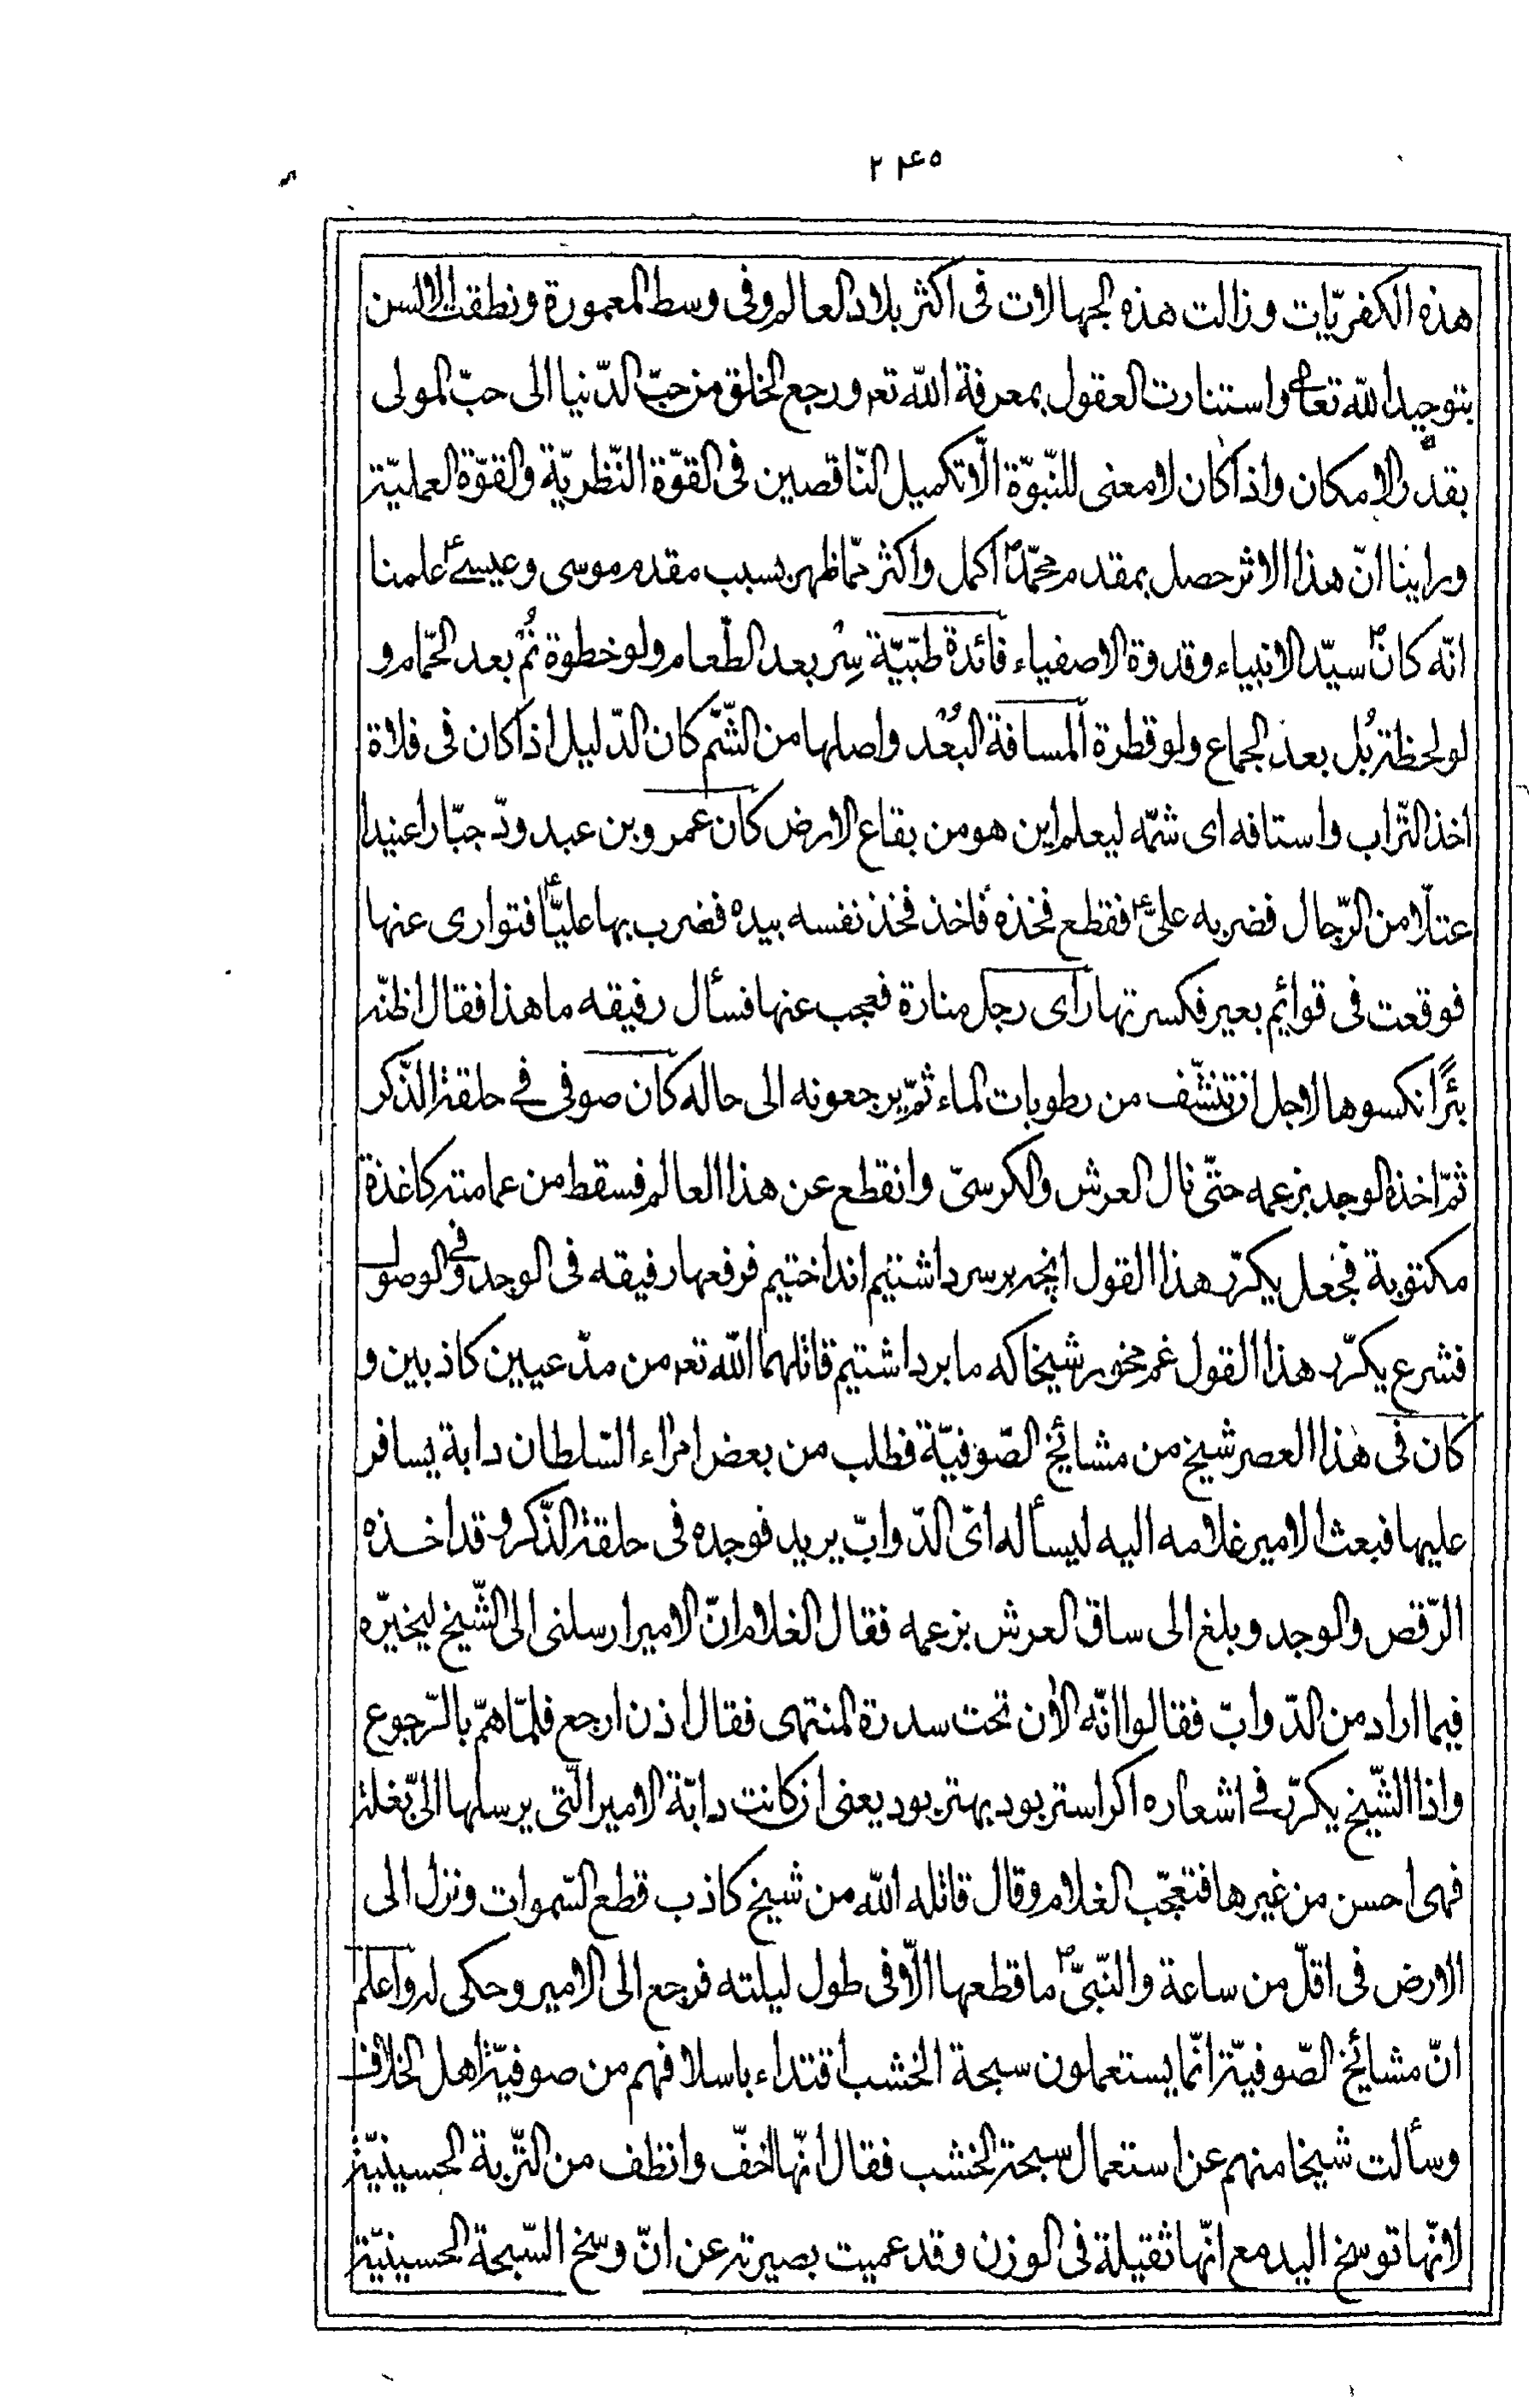 ٢٤٥
هذه الكفريّات وزالت هذه الجهالات فى اكثر بلاد العالم وفى وسط المعمورة ونطقت الالسن
بتوحيد الله تعالى واستنارت العقول بمعرفة الله تعه ورجع الخلق من حبّ الدّنيا الى حبّ المولى
بقدر الامكان واذا كان لا معنى للنّبوّة الّا تكميل النّاقصين فى القوّة النّظريّة والقوّة العمليّة
وراينا انّ هذا الاثر حصل بمقدم محمّد ص اكمل واكثر ممّا ظهر بسبب مقدم موسى وعيسى ع علمنا
انّه كان ص سيّد الانبياء وقدوة الاصفياء فائدة طبّيّة سِر بعد الطّعام ولو خطوة نُم بعد الحمّام و
لو لحظة بُل بعد الجماع ولو قطرة المسافة البُعْد واصلها من الشّم كان الدّليل اذا كان فى فلاة
اخذ التّراب واستافه اى شمّه ليعلم اين هو من بقاع الارض كان عمرو بن عبد ودّ جبّارا عنيدا
عتلّا من الرّجال فضربه علىّ ع فقطع فخذه فاخذ فخذ نفسه بيده فضرب بها عليّا ع فتوارى عنها
فوقعت فى قوائم بعير فكسرتها راى رجل منارة فعجب عنها فسأل رفيقه ما هذا فقال اظنّه
بئرًا نكسوها لاجل ان تنشّف من رطوبات الماء ثمّ يرجعونه الى حاله كان صوفى فى حلقة الذّكر
ثمّ اخذه الوجد بزعمه حتّى نال العرش والكرسىّ وانقطع عن هذا العالم فسقط من عمامته كاغذة
مكتوبة فجعل يكرّر هذا القول انچه بر سر داشتيم انداختيم فرفعها رفيقه فى الوجد وفى الوصول
فشرع يكرّر هذا القول غم مخور شيخا كه ما برداشتيم قاتلهما الله تعه من مدّعيين كاذبين و
كان فى هذا العصر شيخ من مشائخ الصّوفيّة فطلب من بعض امراء السّلطان دابة يسافر
عليها فبعث الامير غلامه اليه ليسأله اىّ الدّوابّ يريد فوجده فى حلقة الذّكر وقد اخذه
الرّقص والوجد وبلغ الى ساق العرش بزعمه فقال الغلام انّ الامير ارسلنى الى الشّيخ ليخيّره
فيما اراد من الدّوابّ فقالوا انّه الأن تحت سدرة المنتهى فقال اذن ارجع فلمّا همّ بالرّجوع
واذا الشّيخ يكرّر فى اشعاره اكر استر بود بهتر بود يعنى ان كانت دابّة الامير الّتى يرسلها الىّ بغلة
فهى احسن من غيرها فتعجّب الغلام وقال قاتله الله من شيخ كاذب قطع السّموات ونزل الى
الارض فى اقلّ من ساعة والنّبىّ ص ما قطعها الّا فى طول ليلته فرجع الى الامير وحكى له واعلم
انّ مشائخ الصّوفيّة انّما يستعملون سبحة الخشب اقتداء باسلافهم من صوفيّة اهل الخلاف
وسألت شيخا منهم عن استعمال سبحة الخشب فقال انّها اخفّ وانظف من التّربة الحسينيّة
لانّها توسخ اليد مع انّها ثقيلة فى الوزن وقد عميت بصيرته عن انّ وسخ السّبحة الحسينيّة